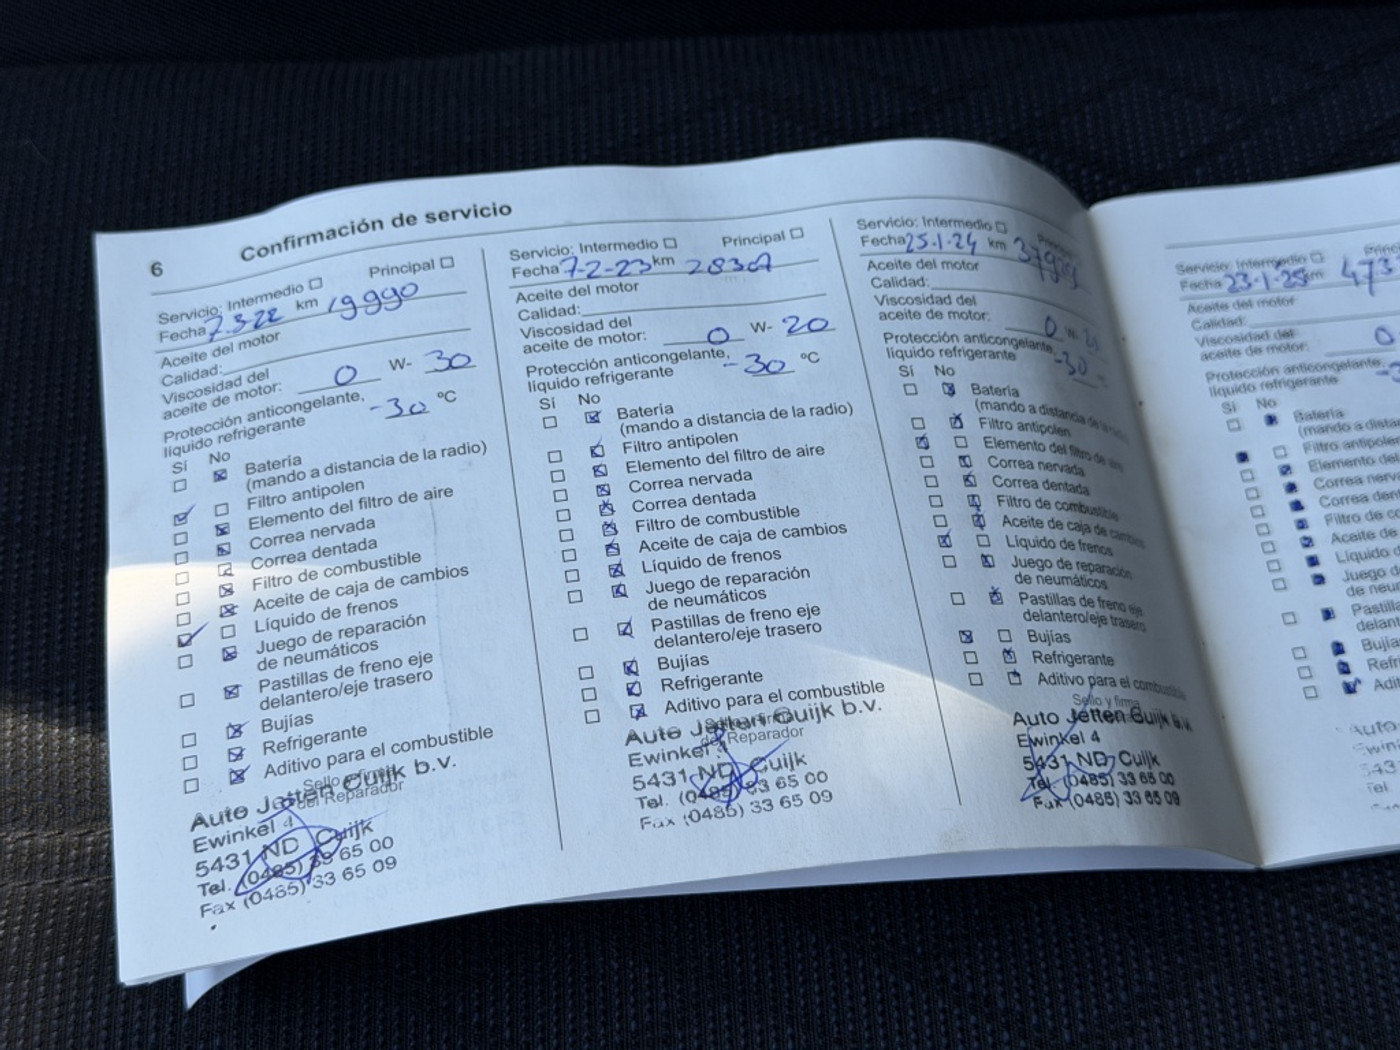 6 Confirmación de servicio
Servicio: Intermedio Principal
Fecha 7.3.22 km 19990
Aceite del motor
Calidad:
Viscosidad del
aceite de motor: 0 W- 30
Protección anticongelante,
líquido refrigerante -30 °C
Sí No
Batería
(mando a distancia de la radio)
Filtro antipolen
Elemento del filtro de aire
Correa nervada
Correa dentada
Filtro de combustible
Aceite de caja de cambios
Líquido de frenos
Juego de reparación
de neumáticos
Pastillas de freno eje
delantero/eje trasero
Bujías
Refrigerante
Aditivo para el combustible
Sello y firma
del Reparador
Auto Jetten Cuijk b.v.
Ewinkel 4
5431 ND Cuijk
Tel. (0485) 33 65 00
Fax (0485) 33 65 09
Servicio: Intermedio Principal
Fecha 7-2-23 km 28307
Aceite del motor
Calidad:
Viscosidad del
aceite de motor: 0 W- 20
Protección anticongelante,
líquido refrigerante -30 °C
Sí No
Batería
(mando a distancia de la radio)
Filtro antipolen
Elemento del filtro de aire
Correa nervada
Correa dentada
Filtro de combustible
Aceite de caja de cambios
Líquido de frenos
Juego de reparación
de neumáticos
Pastillas de freno eje
delantero/eje trasero
Bujías
Refrigerante
Aditivo para el combustible
Sello y firma
del Reparador
Auto Jetten Cuijk b.v.
Ewinkel 4
5431 ND Cuijk
Tel. (0485) 33 65 00
Fax (0485) 33 65 09
Servicio: Intermedio Principal
Fecha 25-1-24 km
Aceite del motor
Calidad:
Viscosidad del
aceite de motor: 0 W-
Protección anticongelante,
líquido refrigerante -30
Sí No
Batería
(mando a distancia de la radio)
Filtro antipolen
Elemento del filtro de aire
Correa nervada
Correa dentada
Filtro de combustible
Aceite de caja de cambios
Líquido de frenos
Juego de reparación
de neumáticos
Pastillas de freno eje
delantero/eje trasero
Bujías
Refrigerante
Aditivo para el combustible
Sello y firma
Auto Jetten Cuijk b.v.
Ewinkel 4
5431 ND Cuijk
Tel. (0485) 33 65 00
Fax (0485) 33 65 09
Servicio: Intermedio
Fecha 23-1-25 km 473
Aceite del motor
Calidad:
Viscosidad del
aceite de motor: 0
Protección anticongelante,
líquido refrigerante
Sí No
Batería
(mando a dista
Filtro antipole
Elemento del
Correa nerv
Correa den
Filtro de co
Aceite de
Líquido d
Juego d
de neum
Pastill
delant
Bujía
Refr
Adit
Auto
Ewin
543
Tel